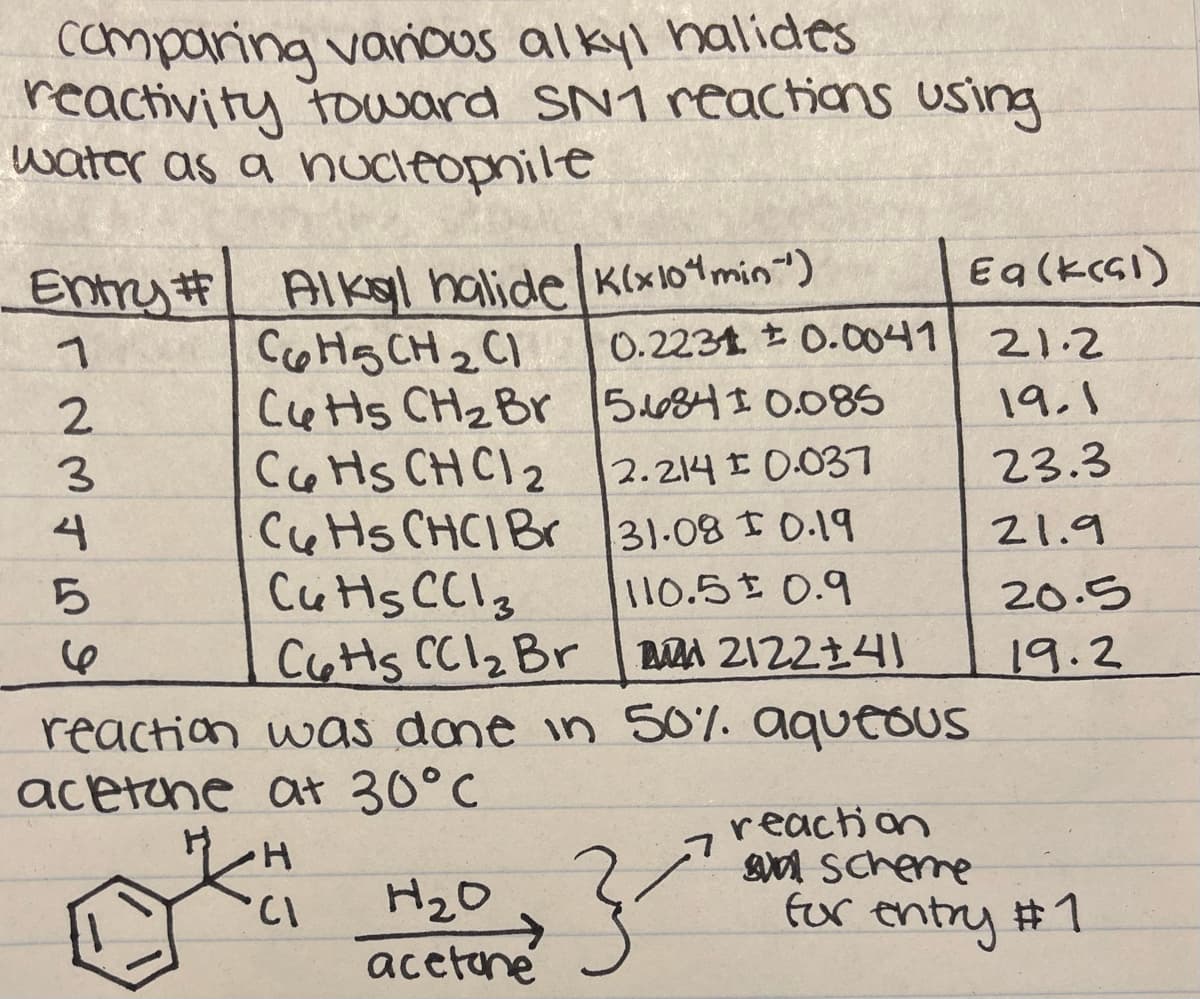 comparing various alkyl halides
reactivity toward SN1 reactions using
water as a nucleophile
Entry # Alkyl halide K(x10⁴min⁻¹) Ea (kcal)
1 C6H5CH2Cl 0.2231 ± 0.0041 21.2
2 C6H5CH2Br 5.684 ± 0.085 19.1
3 C6H5CHCl2 2.214 ± 0.037 23.3
4 C6H5CHClBr 31.08 ± 0.19 21.9
5 C6H5CCl3 110.5 ± 0.9 20.5
6 C6H5CCl2Br 2122 ± 41 19.2
reaction was done in 50% aqueous
acetone at 30°C
H H
Cl
H2O
acetone
reaction
scheme
for entry #1